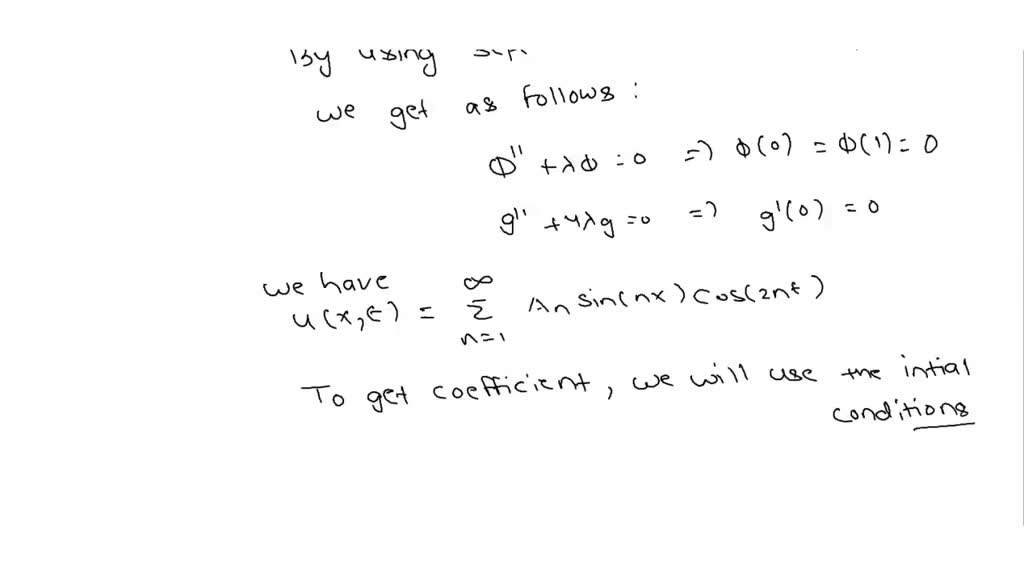 By using
we get as follows :
Φ'' + λΦ = 0 => Φ(0) = Φ(1) = 0
g'' + 4λg = 0 => g'(0) = 0
we have
u(x,t) = ∞ Σ n=1 An sin(nx) cos(2nt)
To get coefficient, we will use the intial
conditions